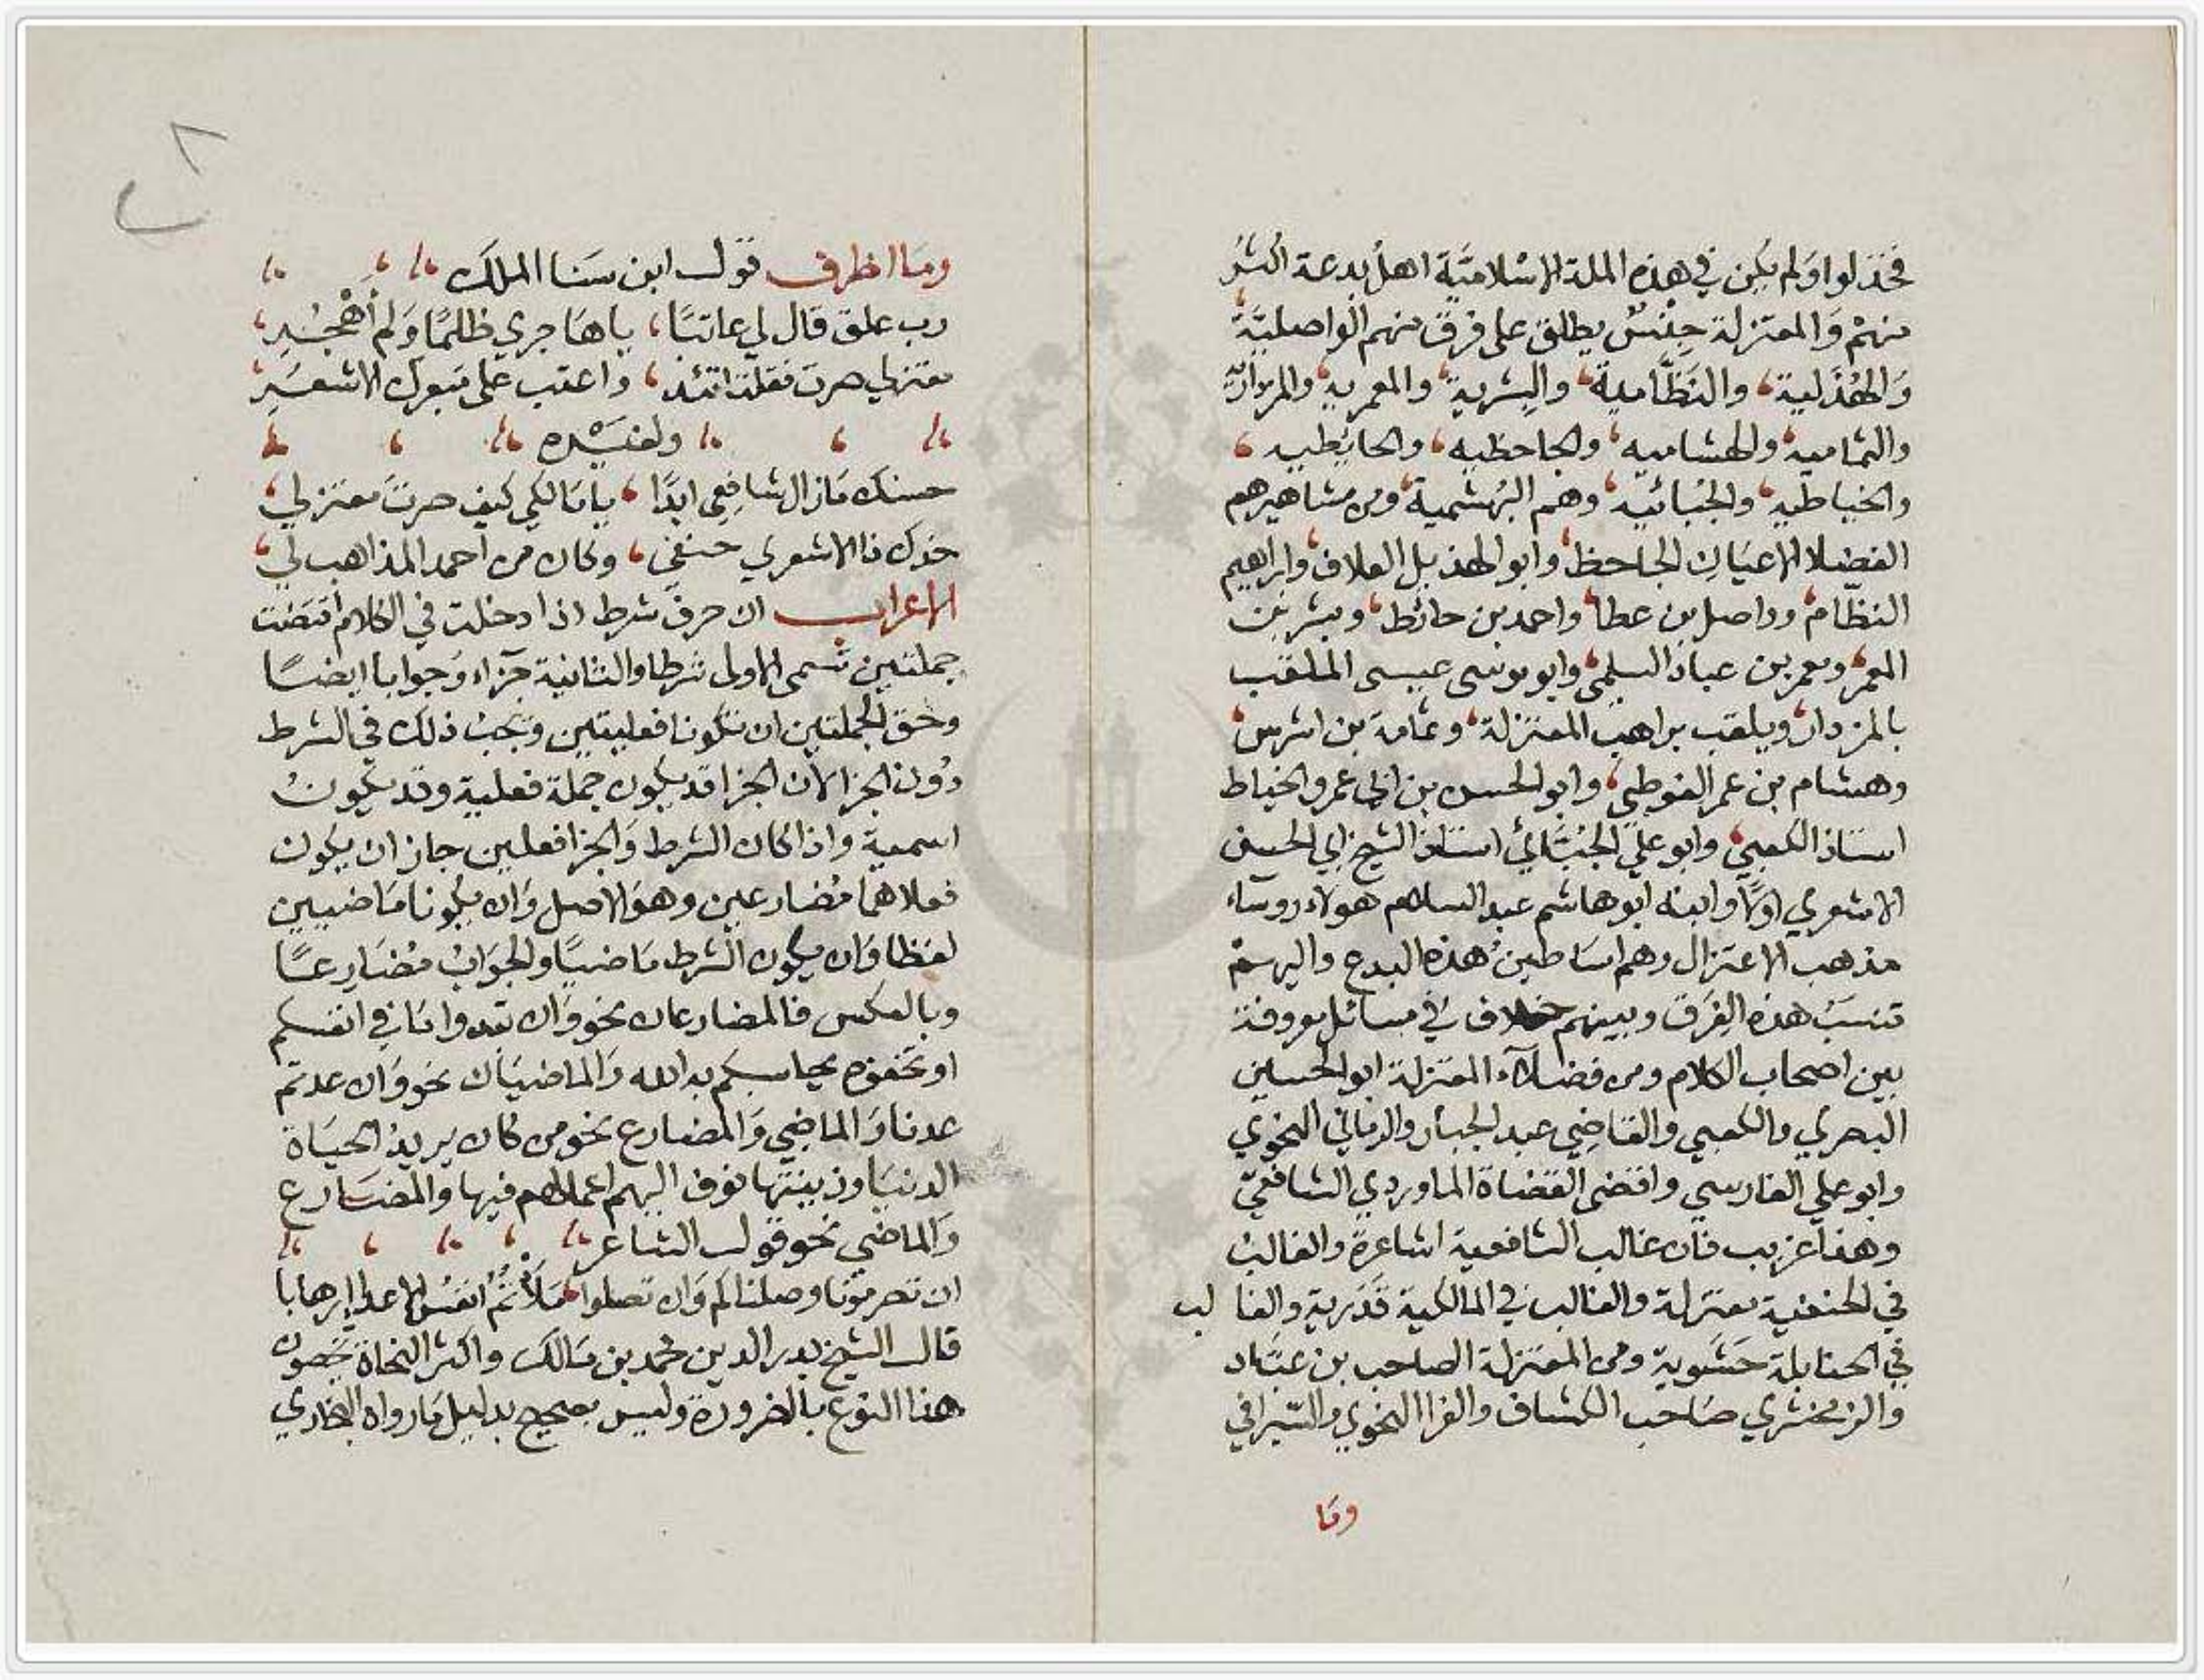 فخذلوا ولم يكن في هذه الملة الاسلاميَّة اهل بدعة اكثر
منهم وَالمعتزلة جنسٌ يطلق على فرق منهم الواصليَّة
وَالهُذَلية، والنَظَّامية، والبشرية، والمعمرية، والمزدارية
والثمامية، والهشاميه، والجاحظيه، والحايطيه،
والخياطيه، والجُبائيّه، وهم البُهشمية، ومن مشاهيرهم
الفضلا الاعيَان الجاحظ، وابو الهذيل العلاف، وابراهيم
النظّام، وواصل بن عطا، واحمد بن حائط، وبشر بن
المعمر، ومعمر بن عباد السلمى، وابو موسى عيسى الملقب
بالمزدار، ويلقب براهب المعتزلة، وثمامة بن اشرس،
وهشام بن عمر الفوطي، وابو الحسن بن ابي عمرو الخياط
استاذ الكعبي، وابو علي الجُبَّائي استاذ الشيخ ابي الحسن
الاشعري اولا وابنه ابو هاشم عبد السلام هولاء روساء
مذهب الاعتزال وهم اساطين هذه البدع واليهم
تنسَبُ هذه الفِرَق وبينهم خلاف في مسائل معروفة
بين اصحاب الكلام ومن فضلآء المعتزلة ابو الحسين
البصري والكعبي والقاضِي عبد الجبار والرماني النحوي
وابو علي الفارسي واقضى القضاة الماوردي الشافعيّ
وهذا غريب فان غالب الشافعية اشاعرة والغالب
في الحنفية معتزلة والغالب في المالكية قَدَرية والغالب
في الحنابلة حَشَوية ومن المعتزلة الصاحب بن عبَّاد
والزمخشري صَاحب الكشاف والفرا النحوي والسّيرافي
ومَا
ومَا اظرف قول ابن سَنا الملك
رب علق قال لي عاتبًا، يا هَاجري ظلمًا وَلم أَهْجُرِ،
معتزلي صرت فقلت اتئد، واعتب على مَبعرك الاشعَرِ،
ولغيْره
حسنك مَا زال شافِعِى ابدًا، يا مَالكي كيف صرتَ معتزلي،
خدك ذا الاشعري حنفَنى، وكان من احمد المذاهب لي،
الاعراب ان حرف شرط اذا دخلت في الكلام اقتضَت
جملتين تسمى الاولى شرطا والثانية جَزاء وَجوابا ايضًا
وحق الجملتين ان تكونا فعليتين وتجبُ ذلك في الشرط
دُون الجزا لان الجزا قد يكون جملة فعلية وقد يكونُ
اسمية واذا كان الشرط وَالجزا فعلين جاز ان يكون
فعلاهما مُضارعين وهوَ الاصل وَان يكونا مَاضيين
لفظا وَان يكون الشرط مَاضيًا والجوَابُ مُضَارعًا
وبالعكس فالمضارعان نحو وَان تبدوا مَا في انفسكم
او تخفوه يحاسبكم به الله وَالماضيَان نحو وَان عدتم
عدنا وَالماضي وَالمضارع نحو من كان يريد الحيَاة
الدنيا وزينتها نوف اليهم اعمالهم فيها والمضَارع
وَالماضي نحو قول الشاعر
ان تصرمونا وصلناكم وَان تصلوا، مَلأتُمُ انفسُ الاعدا إرهابا
قال الشيخ بدر الدين محمد بن مَالك واكثر النحاة يخصون
هذا النوع بالضرورة وليس بصحيح بدليل مَا رواه البخاري